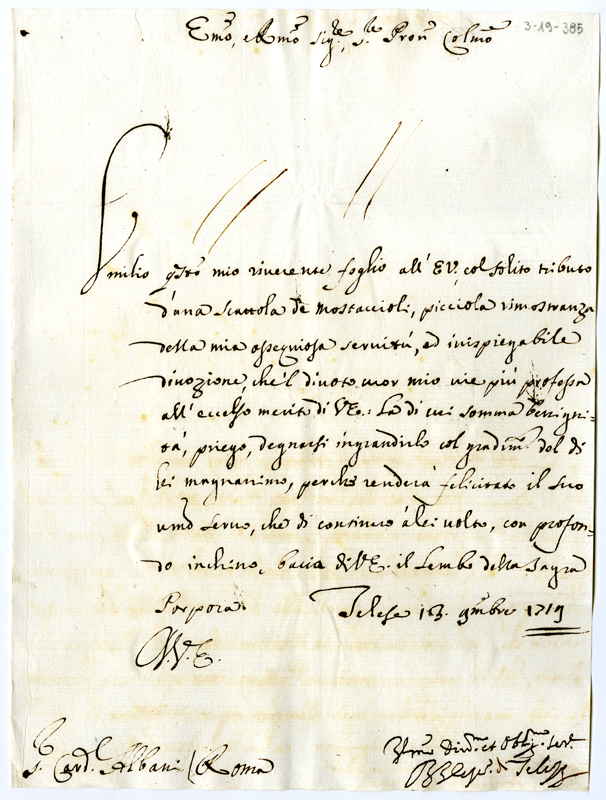 3-19-385
Emo, e Rmo Sigre, Sre Pron Colmo
Umilio qsto mio riverente foglio all' EV, col solito tributo
d'una Scattola de Mostaccioli, picciola rimostranza
della mia ossequiosa servitù, ed inispiegabile
divozione, che'l divoto cuor mio vie più professa
all' eccelso merito di VE.: La di cui somma benigni=
tà, priego, degnarsi ingrandirlo col gradimo. del di
lei magnanimo, perche renderà felicitato il suo
umo servo, che di continuo à lei volto, con profon=
do inchino, bacia di VE. il Lembo della Sagra
Porpora. Telese 13. 9mbre 1719
D.V.E.
Sr. Cardl. Albani / Roma
Humo Divmo et Obbmo. Serv.
Telese